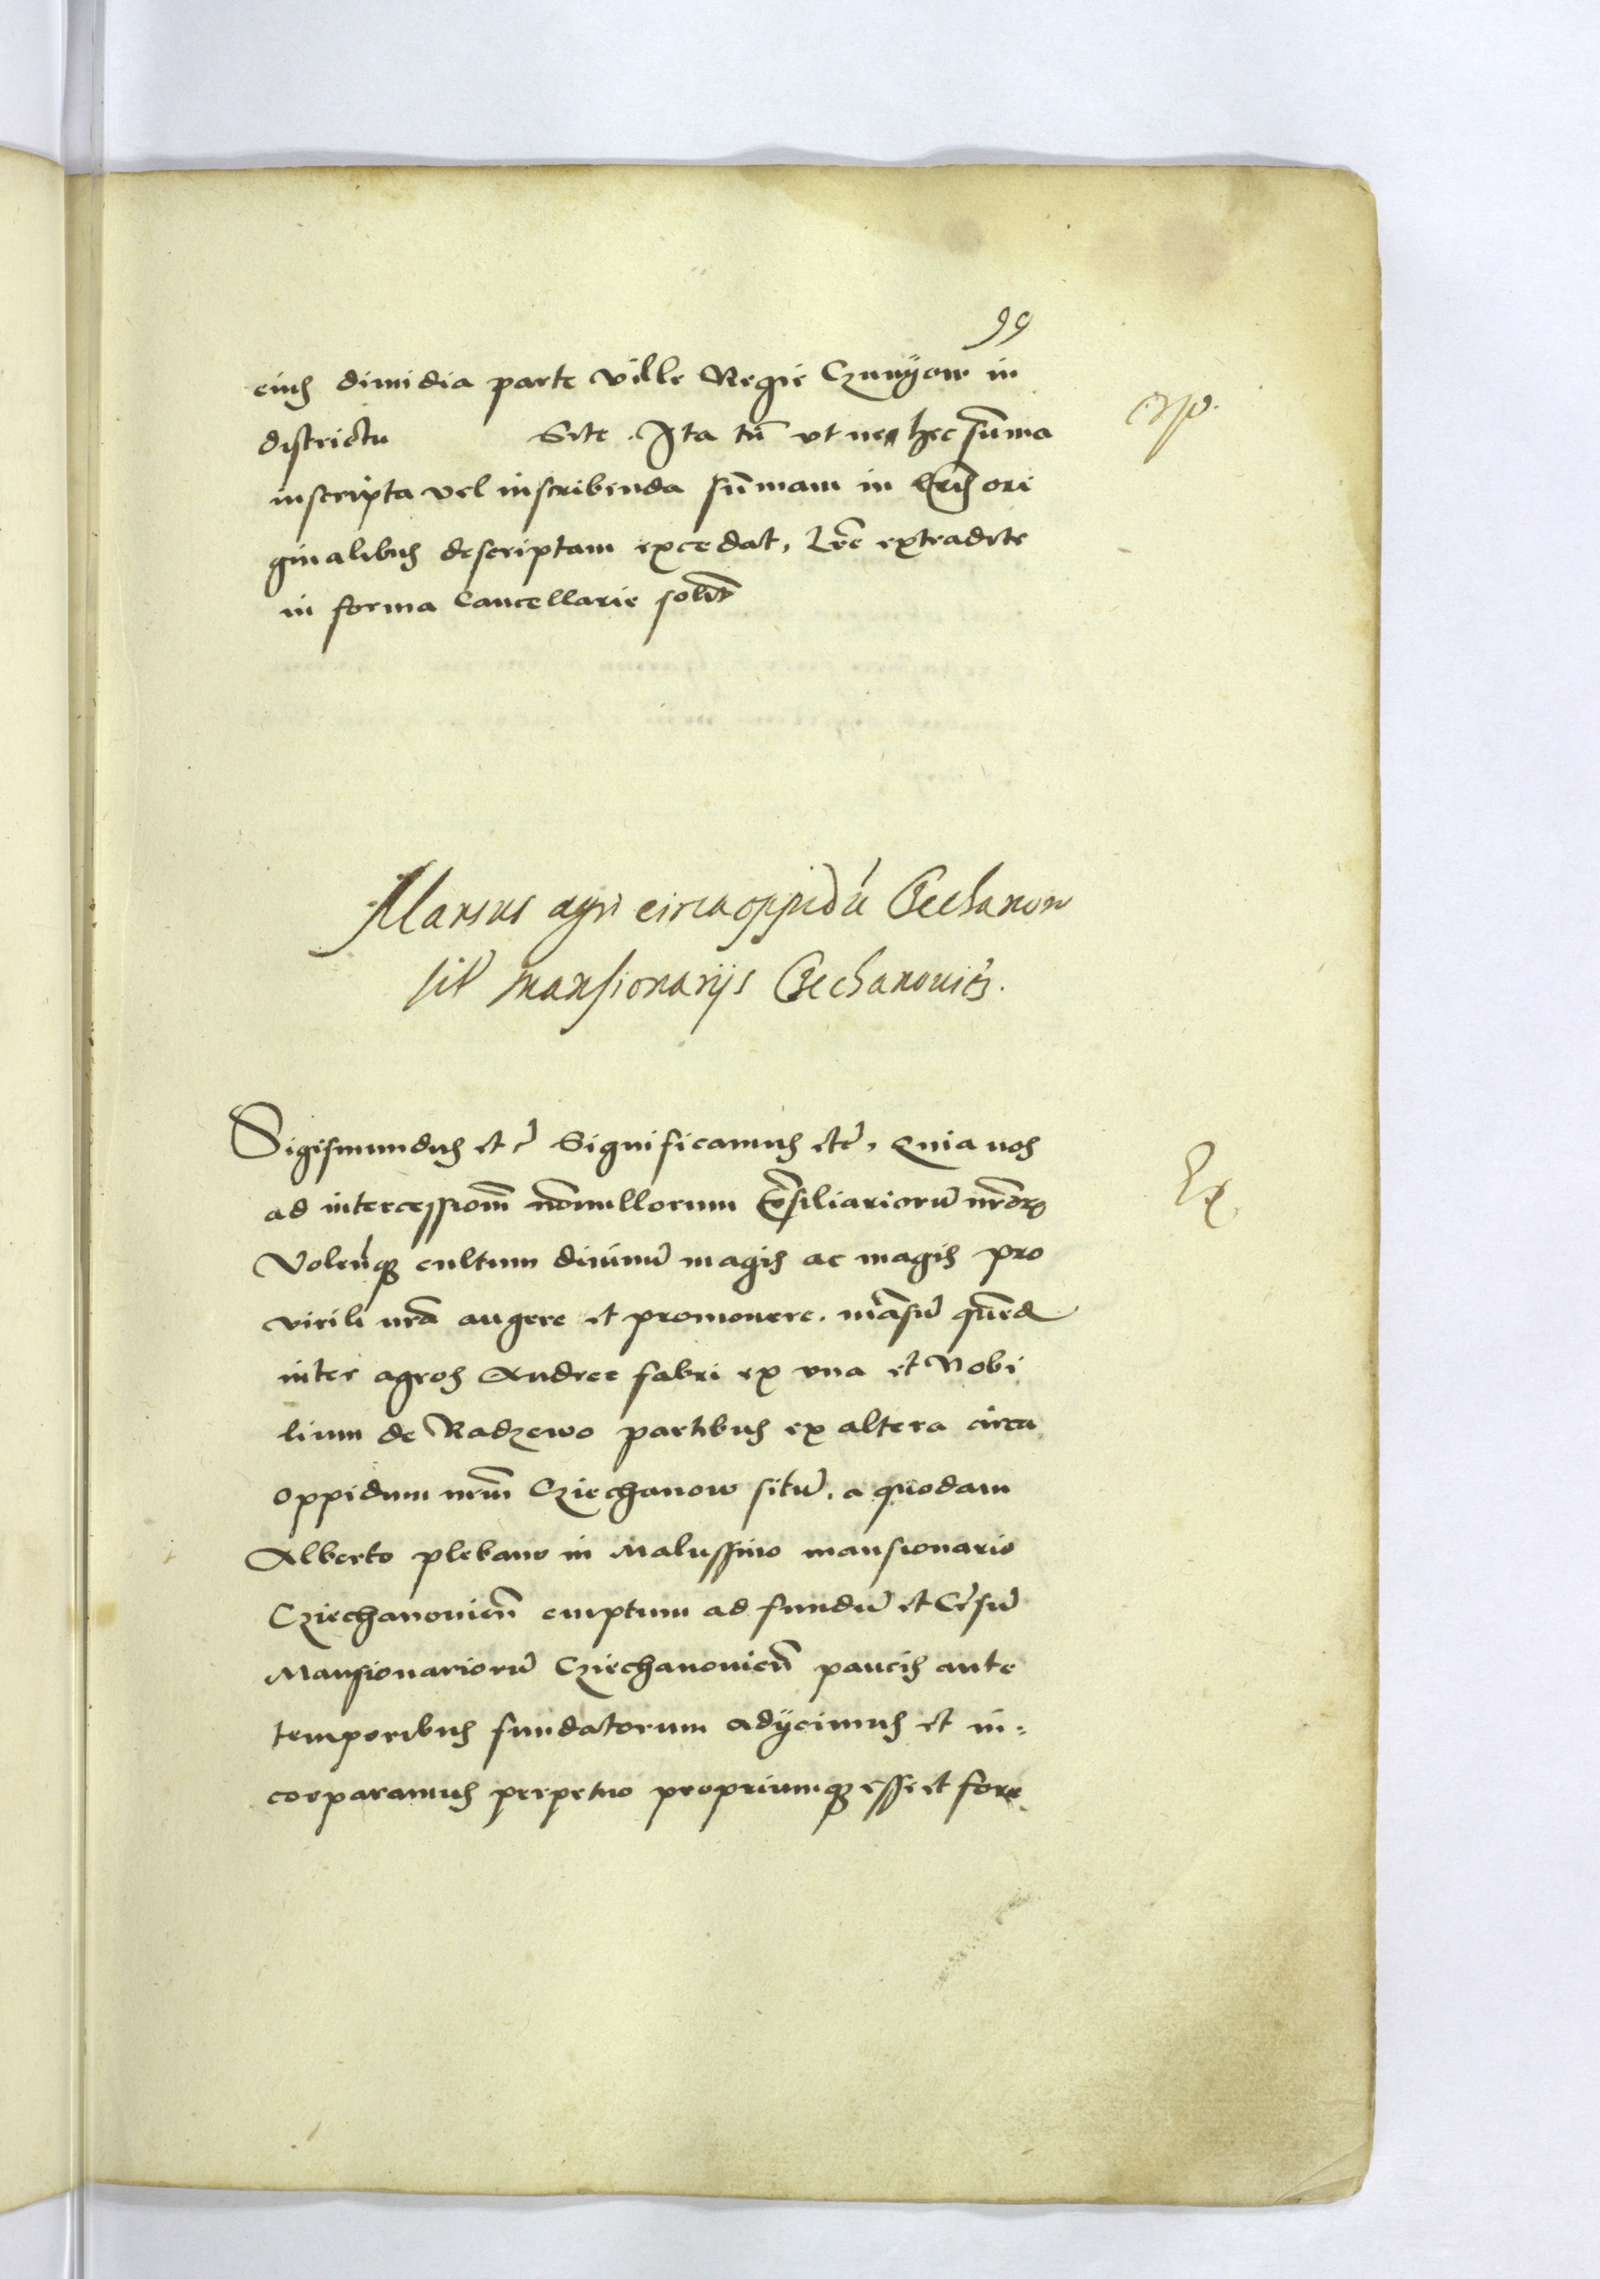 99
eius dimidia parte ville Regie Czunyow in
districtu Site. Ita tn̄ vt ne hec sūma
inscripta vel inscribenda sūmam in lr̄is ori
ginalibus descriptam excedat, Lrē extradite
in forma Cancellarie solit̄
Mansus agri circa oppidū Ciechanow
sit mansionarijs Ciechanovien̄.
Sigismundus etc̄ Significamus etc̄, Quia nos
ad intercessionē nōnullorum Cōsiliariorū nr̄orum
Volen̄tque cultum diuinū magis ac magis pro
virili nrā augere et promouere. māsū quēd
inter agros Andree fabri ex vna et Nobi
lium de Radzewo partibus ex altera circa
oppidum nrm̄ Cziechanow sitū. a quodam
Alberto plebano in Malussino mansionario
Cziechanovien̄ emptum ad fundū et Cēsū
Mansionariorū Cziechanovien̄ paucis ante
temporibus fundatorum adijcimus et in=
corparamus perpetuo propriumque esse et fore
Ex